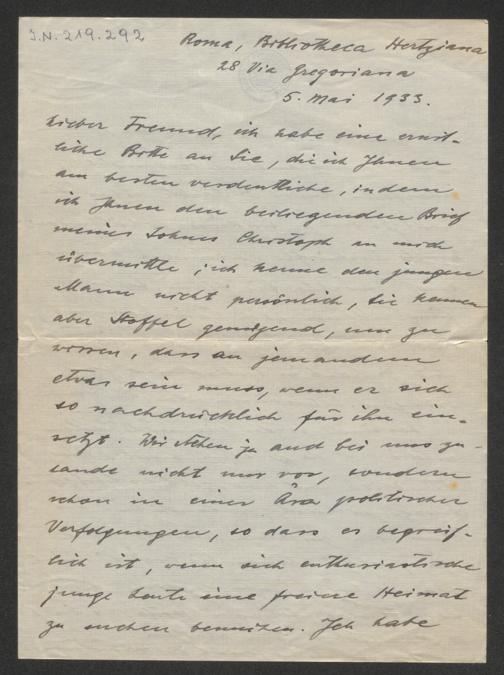 I.N. 219.292
Roma, Bibliotheca Hertziana
28 Via Gregoriana
5. Mai 1933.
Lieber Freund, ich habe eine ernst-
liche Bitte an Sie, die ich Ihnen
am besten verdeutliche, indem
ich Ihnen den beiliegenden Brief
meines Sohnes Christoph an mich
übermittle; ich kenne den jungen
Mann nicht persönlich, Sie kennen
aber Stoffel genügend, um zu
wissen, dass an jemandem
etwas sein muss, wenn er sich
so nachdrücklich für ihn ein-
setzt. Wir stehen ja auch bei uns zu-
lande nicht nur vor, sondern
schon in einer Ära politischer
Verfolgungen, so dass es begreif-
lich ist, wenn sich enthusiastische
junge Leute eine freiere Heimat
zu suchen bemühen. Ich habe